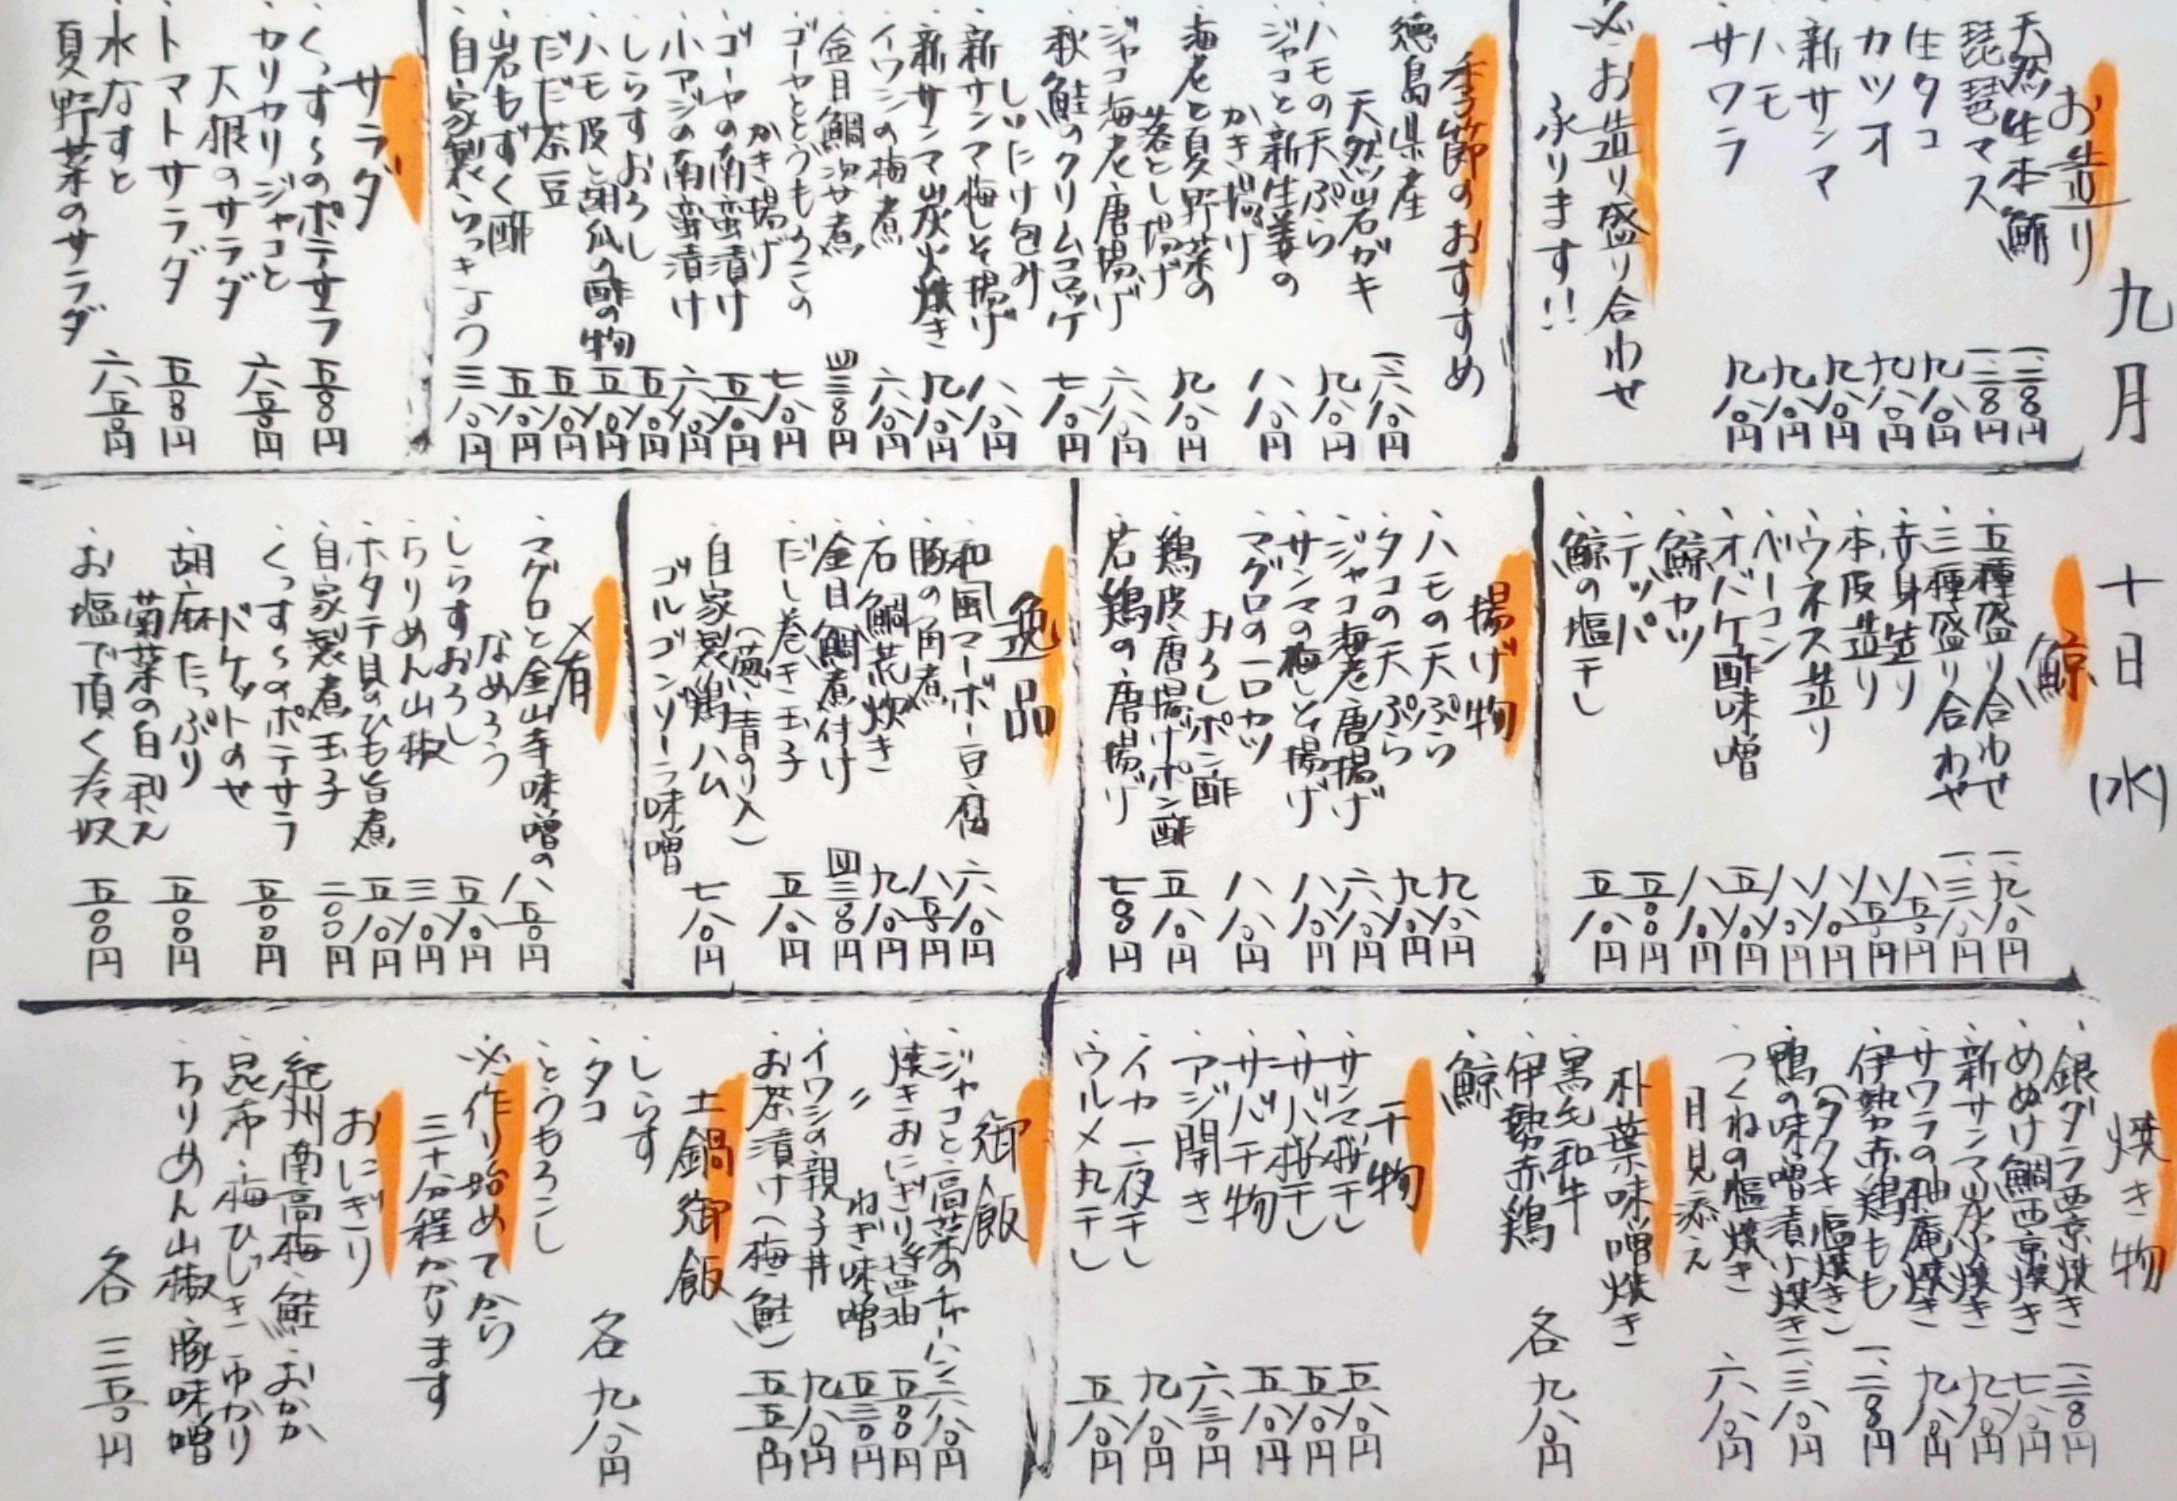 九月 十日 (水)
お造り
・天然生本鮪 一、二八〇円
・琵琶マス 一、二八〇円
・生タコ 九八〇円
・カツオ 九八〇円
・新サンマ 九八〇円
・ハモ 九八〇円
・サワラ 九八〇円
※お造り盛り合わせ
承ります!!
季節のおすすめ
・徳島県産
天然岩ガキ 一、六八〇円
・ハモの天ぷら 九八〇円
・ジャコと新生姜の
かき揚げ 八八〇円
・海老と夏野菜の
落とし揚げ 九八〇円
・ジャコ海老唐揚げ 六八〇円
・秋鮭のクリームコロッケ 七八〇円
しいたけ包み
・新サンマ梅しそ揚げ 八八〇円
・新サンマ炭火焼き 九八〇円
・イワシの梅煮 六八〇円
・金目鯛沢煮 四三八〇円
・ゴーヤととうもろこしの
かき揚げ 七八〇円
・ゴーヤの南蛮漬け 五八〇円
・小アジの南蛮漬け 六八〇円
・しらすおろし 五八〇円
・ハモ皮と胡瓜の酢の物 五八〇円
・だだ茶豆 五八〇円
・岩もずく酢 五八〇円
・自家製らっきょう 三八〇円
サラダ
・くっす〜のポテサラ 五八〇円
・カリカリジャコと
大根のサラダ 六八〇円
・トマトサラダ 五八〇円
・水なすと
夏野菜のサラダ 六八〇円
鯨
・五種盛り合わせ 一、九八〇円
・三種盛り合わせ 一、三八〇円
・赤身造り 八五〇円
・本皮造り 八五〇円
・ウネス造り 八八〇円
・ベーコン 八八〇円
・オバケ酢味噌 五八〇円
・鯨カツ 八八〇円
・テッパ 五八〇円
・鯨の塩干し 五八〇円
揚げ物
・ハモの天ぷら 九八〇円
・タコの天ぷら 九八〇円
・ジャコ海老唐揚げ 六八〇円
・サンマの梅しそ揚げ 八八〇円
・マグロの一口カツ
おろしポン酢 八八〇円
・鶏皮唐揚げポン酢 五八〇円
・若鶏の唐揚げ 七八〇円
逸品
・和風マーボー豆腐 六八〇円
・豚の角煮 八五〇円
・石鯛荒炊き 九八〇円
・金目鯛煮付け 四三八〇円
・だし巻き玉子 五八〇円
(葱・青のり入)
・自家製鶏ハム 七八〇円
ゴルゴンゾーラ味噌
肴
・マグロと金山寺味噌の
なめろう 八五〇円
・しらすおろし 五八〇円
・ちりめん山椒 三八〇円
・ホタテ貝のひも旨煮 五八〇円
・自家製煮玉子 二〇〇円
・くっす〜のポテサラ
バケットのせ 五〇〇円
・胡麻たっぷり
菊菜の白和え 五〇〇円
・お塩で頂く冷奴 五〇〇円
焼き物
・銀ダラ西京焼き 一、二八〇円
・めぬけ鯛西京焼き 七八〇円
・新サンマ炭火焼き 九八〇円
・サワラの柚庵焼き 九八〇円
・伊勢赤鶏もも 一、二八〇円
(タタキ・塩焼き)
・鴨の味噌漬け焼き 二、三八〇円
・つくねの塩焼き 六八〇円
月見添え
朴葉味噌焼き
・黒毛和牛
・伊勢赤鶏
・鯨
各 九八〇円
干物
・サンマ桜干し 五八〇円
・サバ桜干し 五八〇円
・サバ干物 五八〇円
・アジ開き 六三〇円
・イカ一夜干し 九八〇円
・ウルメ丸干し 五八〇円
御飯
・ジャコと高菜のチャーハン 六八〇円
・焼きおにぎり醤油 五〇〇円
・〃 ねぎ味噌 五三〇円
・イワシの親子丼 九八〇円
・お茶漬け(梅・鮭) 五五〇円
土鍋御飯
・しらす
・タコ
・とうもろこし
各 九八〇円
※作り始めてから
三十分程かかります
おにぎり
・紀州南高梅・鮭・おかか
・昆布・梅ひじき・ゆかり
・ちりめん山椒・豚味噌
各 三五〇円